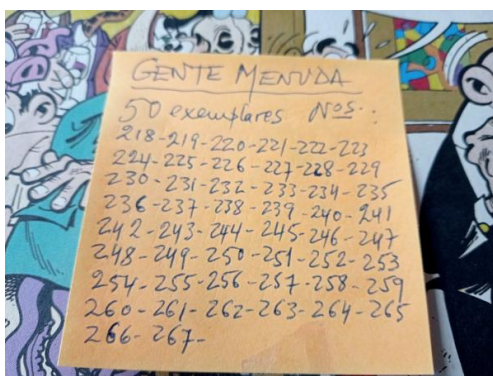 GENTE MENUDA
50 exemplares Nos.:
218-219-220-221-222-223
224-225-226-227-228-229
230-231-232-233-234-235
236-237-238-239-240-241
242-243-244-245-246-247
248-249-250-251-252-253
254-255-256-257-258-259
260-261-262-263-264-265
266-267-